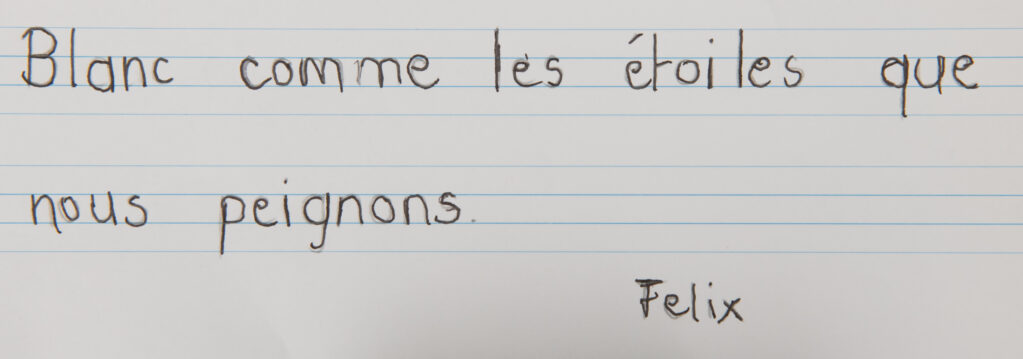 Blanc comme les étoiles que
nous peignons.
Felix